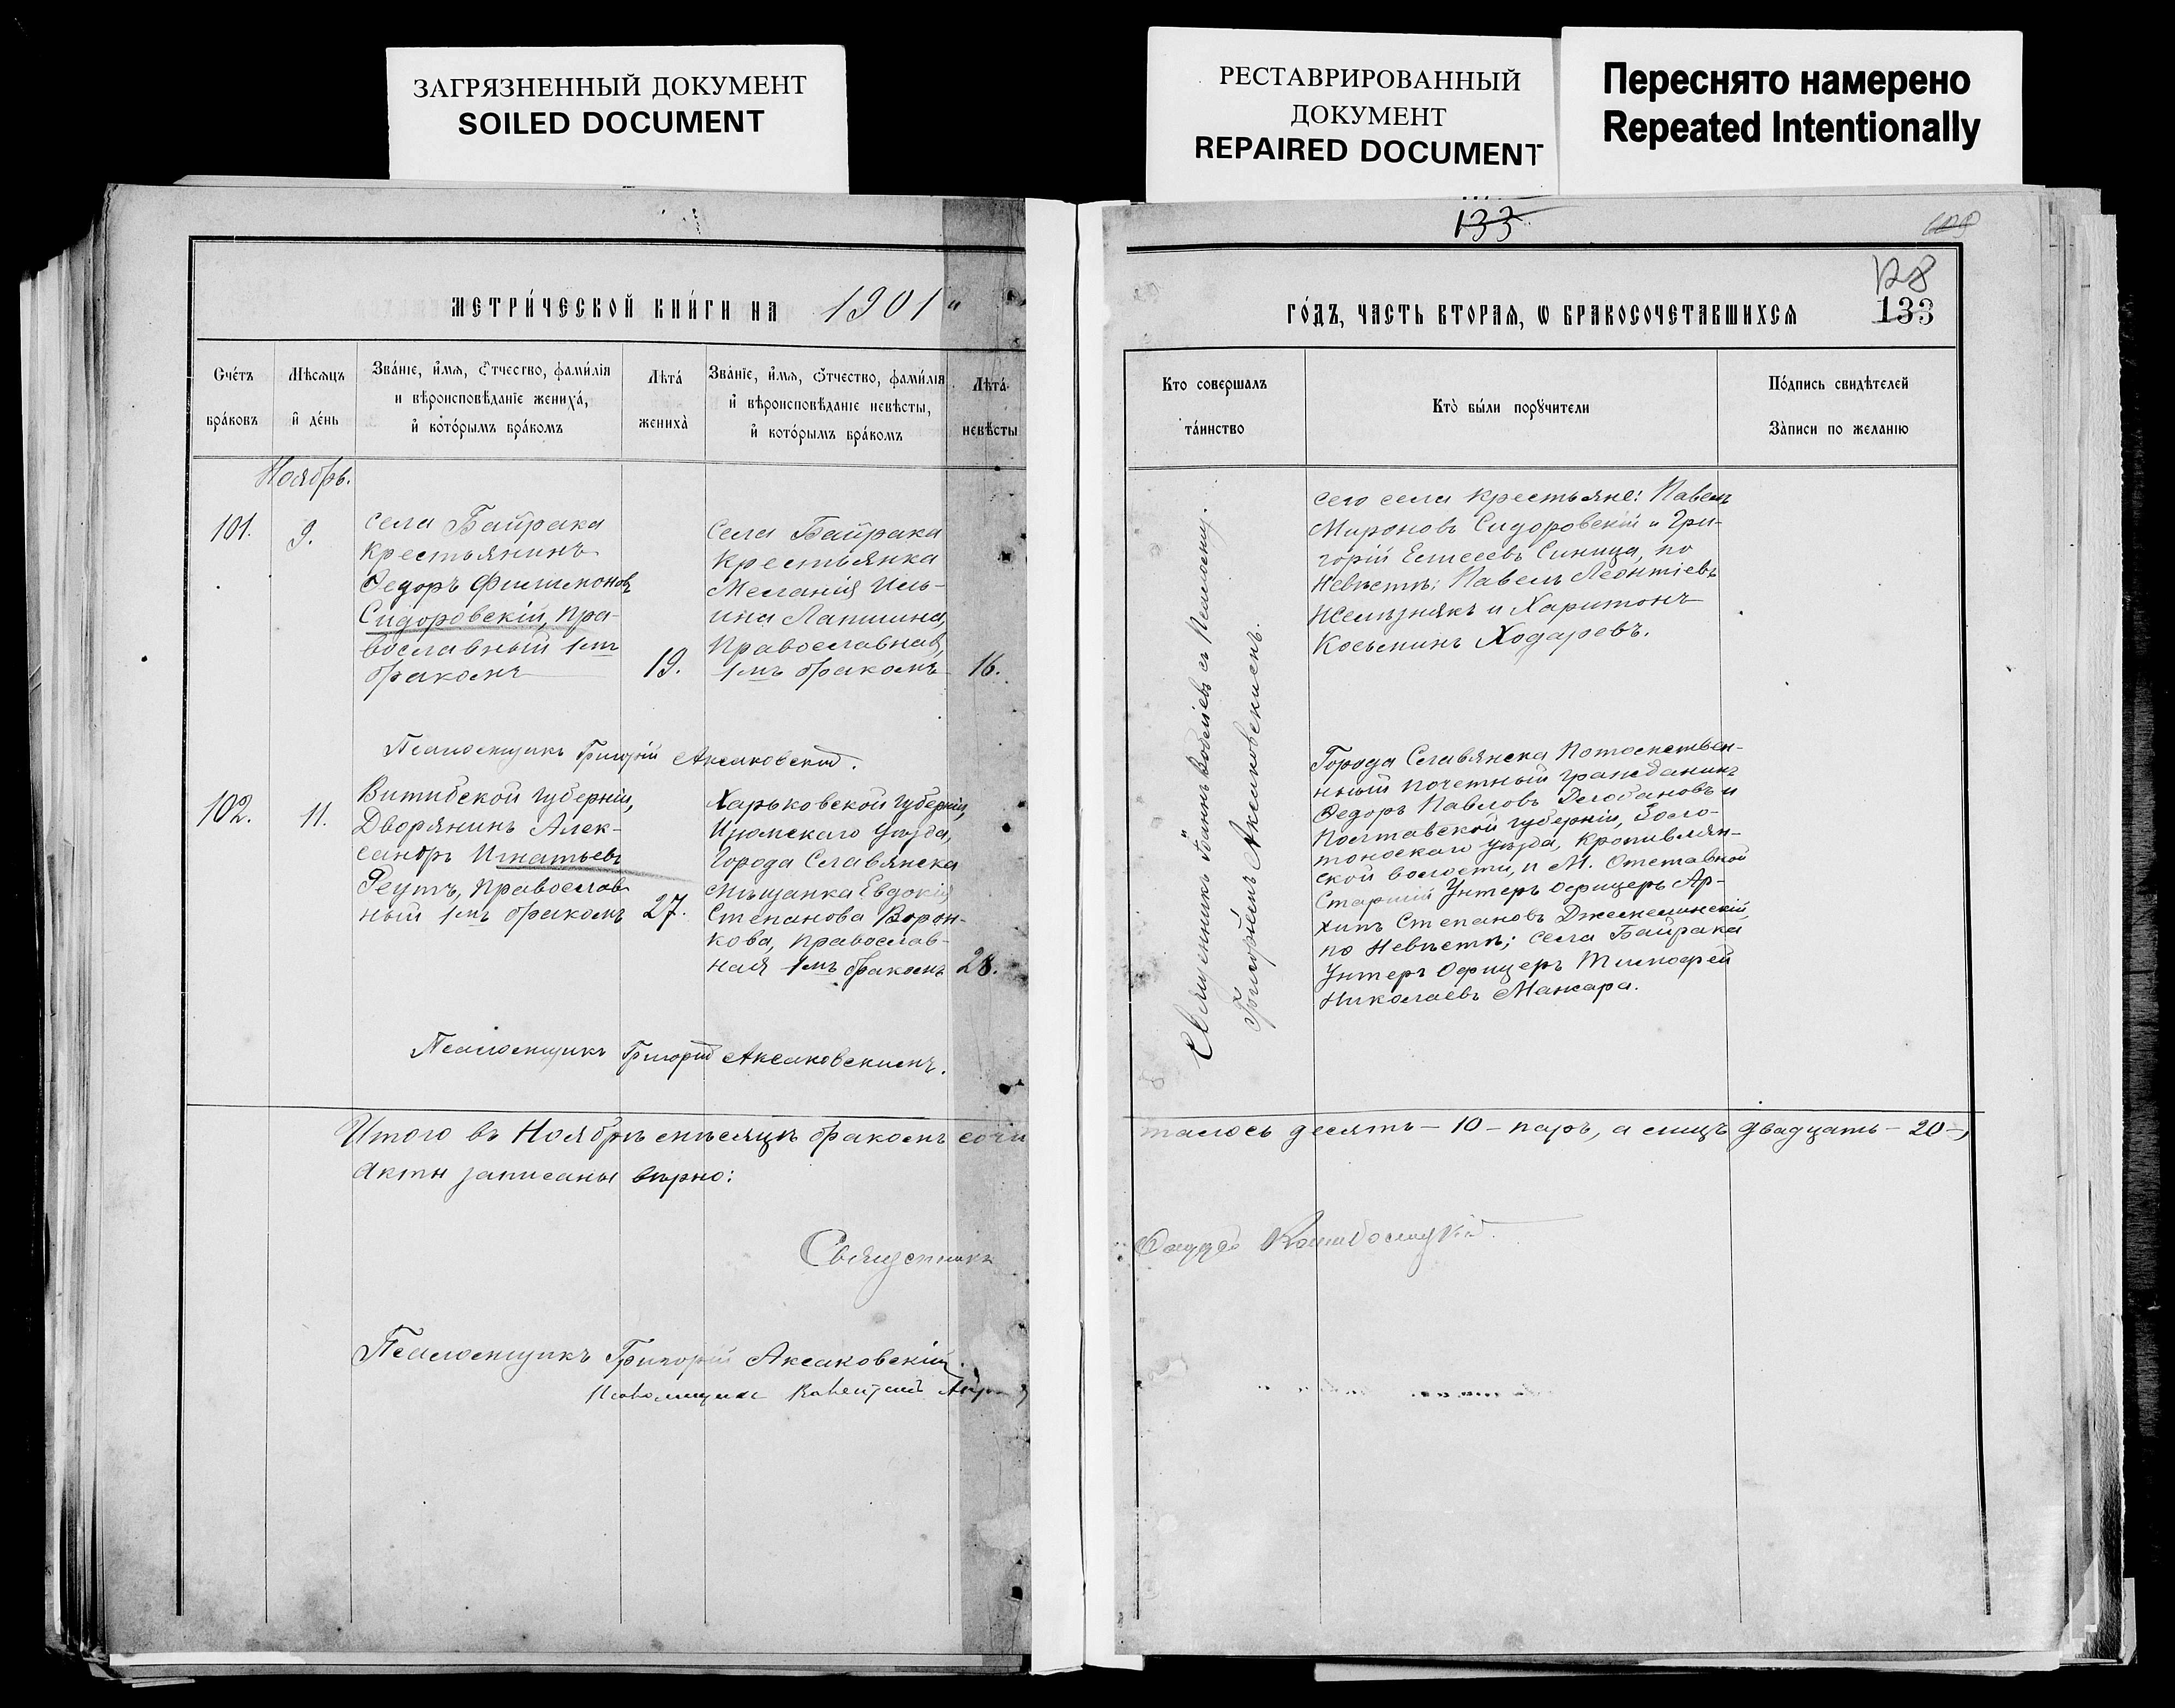 ЗАГРЯЗНЕННЫЙ ДОКУМЕНТ
SOILED DOCUMENT
РЕСТАВРИРОВАННЫЙ
ДОКУМЕНТ
REPAIRED DOCUMENT
Переснято намерено
Repeated Intentionally
133
128
133
МЕТРИ́ЧЕСКОЙ КНИ́ГИ НА 1901
ГО́ДЪ, ЧАСТЬ ВТОРАѦ, Ѡ БРАКОСОЧЕТАВШИХСѦ
Сче́тъ
бра́ковъ
Мѣсяцъ
и҆ де́нь
Зва́нїе, и҆́мѧ, ѻ҆́тчество, фами́лїѧ
и вѣроисповѣданїе жениха̀,
и҆ кото́рымъ бра́комъ
Лѣта̀
жениха̀
Зва́нїе, и҆́мѧ, ѻ҆́тчество, фами́лїѧ
и҆ вѣроисповѣданїе невѣсты,
и҆ кото́рымъ бра́комъ
Лѣта̀
невѣсты
Кто совершалъ
та́инство
Кто̀ бы́ли порꙋчители
По́дпись свидѣтелей
За́писи по желанїю
Ноябрь.
101.
9.
села Байрака
крестьянинъ
Ѳедоръ Филимоновъ
Сидоровскій, пра-
вославный 1мъ
бракомъ
19.
Села Байрака
крестьянка
Меланія Иль-
ина Лапшина,
православная,
1мъ бракомъ
16.
сего села крестьяне: Павелъ
Мироновъ Сидоровскій и Гри-
горій Елисеевъ Синица, по
Невѣстѣ: Павелъ Леонтіевъ
Желѣзнякъ и Харитонъ
Косьминъ Ходаревъ.
Псаломщикъ Григорій Аксаковскій.
102.
11.
Витибской губерніи,
Дворянинъ Алек-
сандръ Игнатьевъ
Реутъ, православ-
ный 1мъ бракомъ
27.
Харьковской губерніи,
Изюмскаго уѣзда,
Города Славянска
Мѣщанка Евдокія
Степанова Ворон-
кова, православ-
ная 1мъ бракомъ
28.
Города Славянска Потомствен-
ный почетный гражданинъ
Ѳедоръ Павловъ и
Полтавской губерніи, Золо-
тоношскаго уѣзда, Кропивлян-
ской волости, Отставной
Старшій Унтеръ Офицеръ Ар-
хипъ Степановъ
по Невѣстѣ; села Байрака
Унтеръ Офицеръ Тимофей
Николаевъ Манжара.
Священникъ Іоаннъ съ Псаломщ.
Григоріемъ Аксаковскимъ.
Псаломщикъ Григорій Аксаковскимъ.
Итого въ Ноябрѣ мѣсяцѣ бракомъ соче
талось десять — 10 — паръ, а лицъ двадцать — 20 —,
Акты записаны вѣрно:
Священникъ
Псаломщикъ Григорій Аксаковскій.